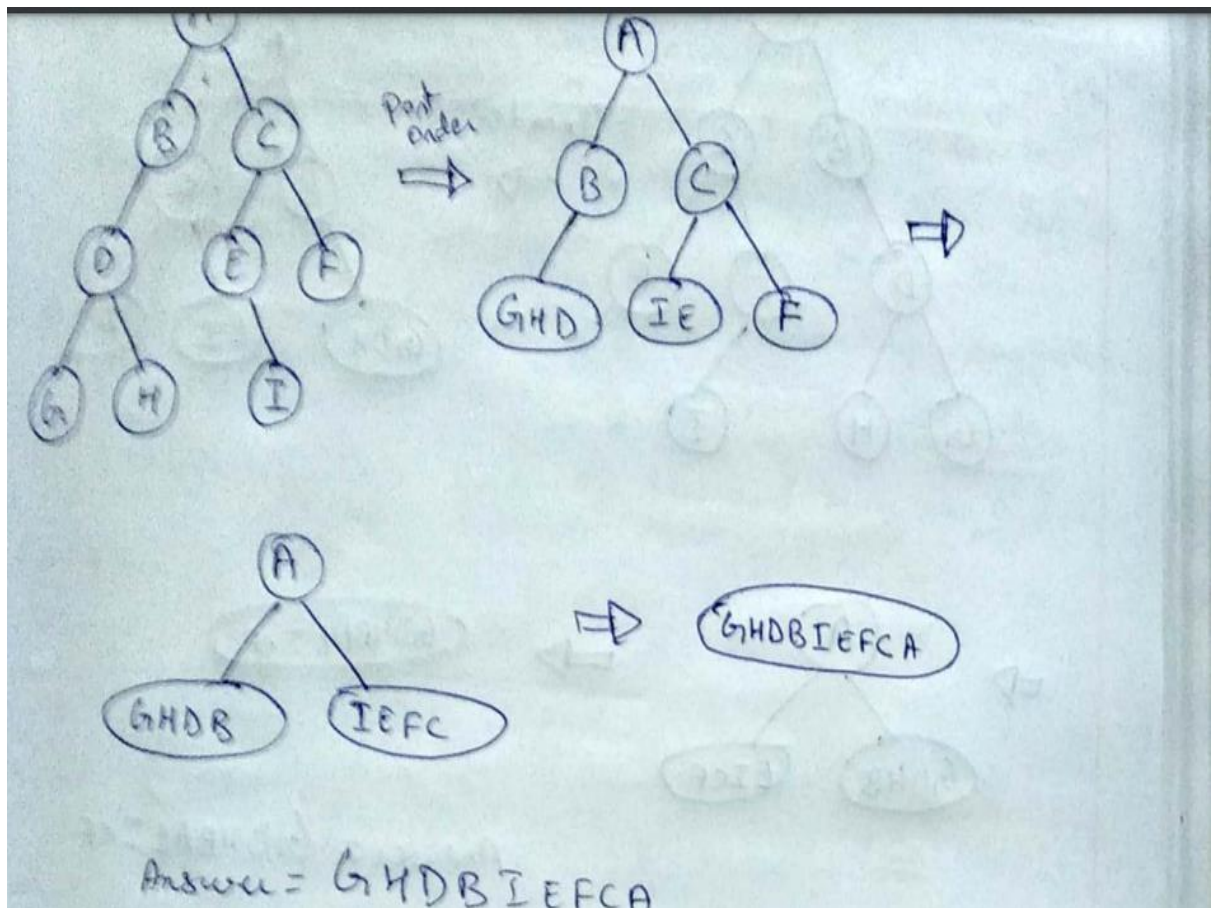 A
B C
D E F
G H I
Post order
A
B C
GHD IE F
A
GHDB IEFC
GHDBIEFCA
Answer = GHDBIEFCA